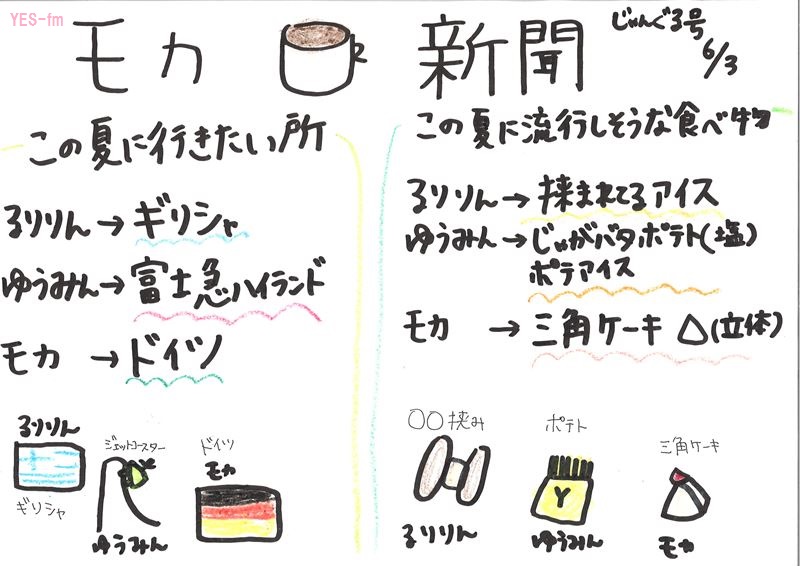 YES-fm
モカ 新聞
じゅんぐる号
6/3
この夏に行きたい所
るりりん→ギリシャ
ゆうみん→富士急ハイランド
モカ →ドイツ
るりりん
ギリシャ
ジェットコースター
ゆうみん
ドイツ
モカ
この夏に流行しそうな食べ物
るりりん→挟まれてるアイス
ゆうみん→じゃがバタポテト(塩)
ポテアイス
モカ →三角ケーキ△(立体)
〇〇挟み
るりりん
ポテト
Y
ゆうみん
三角ケーキ
モカ